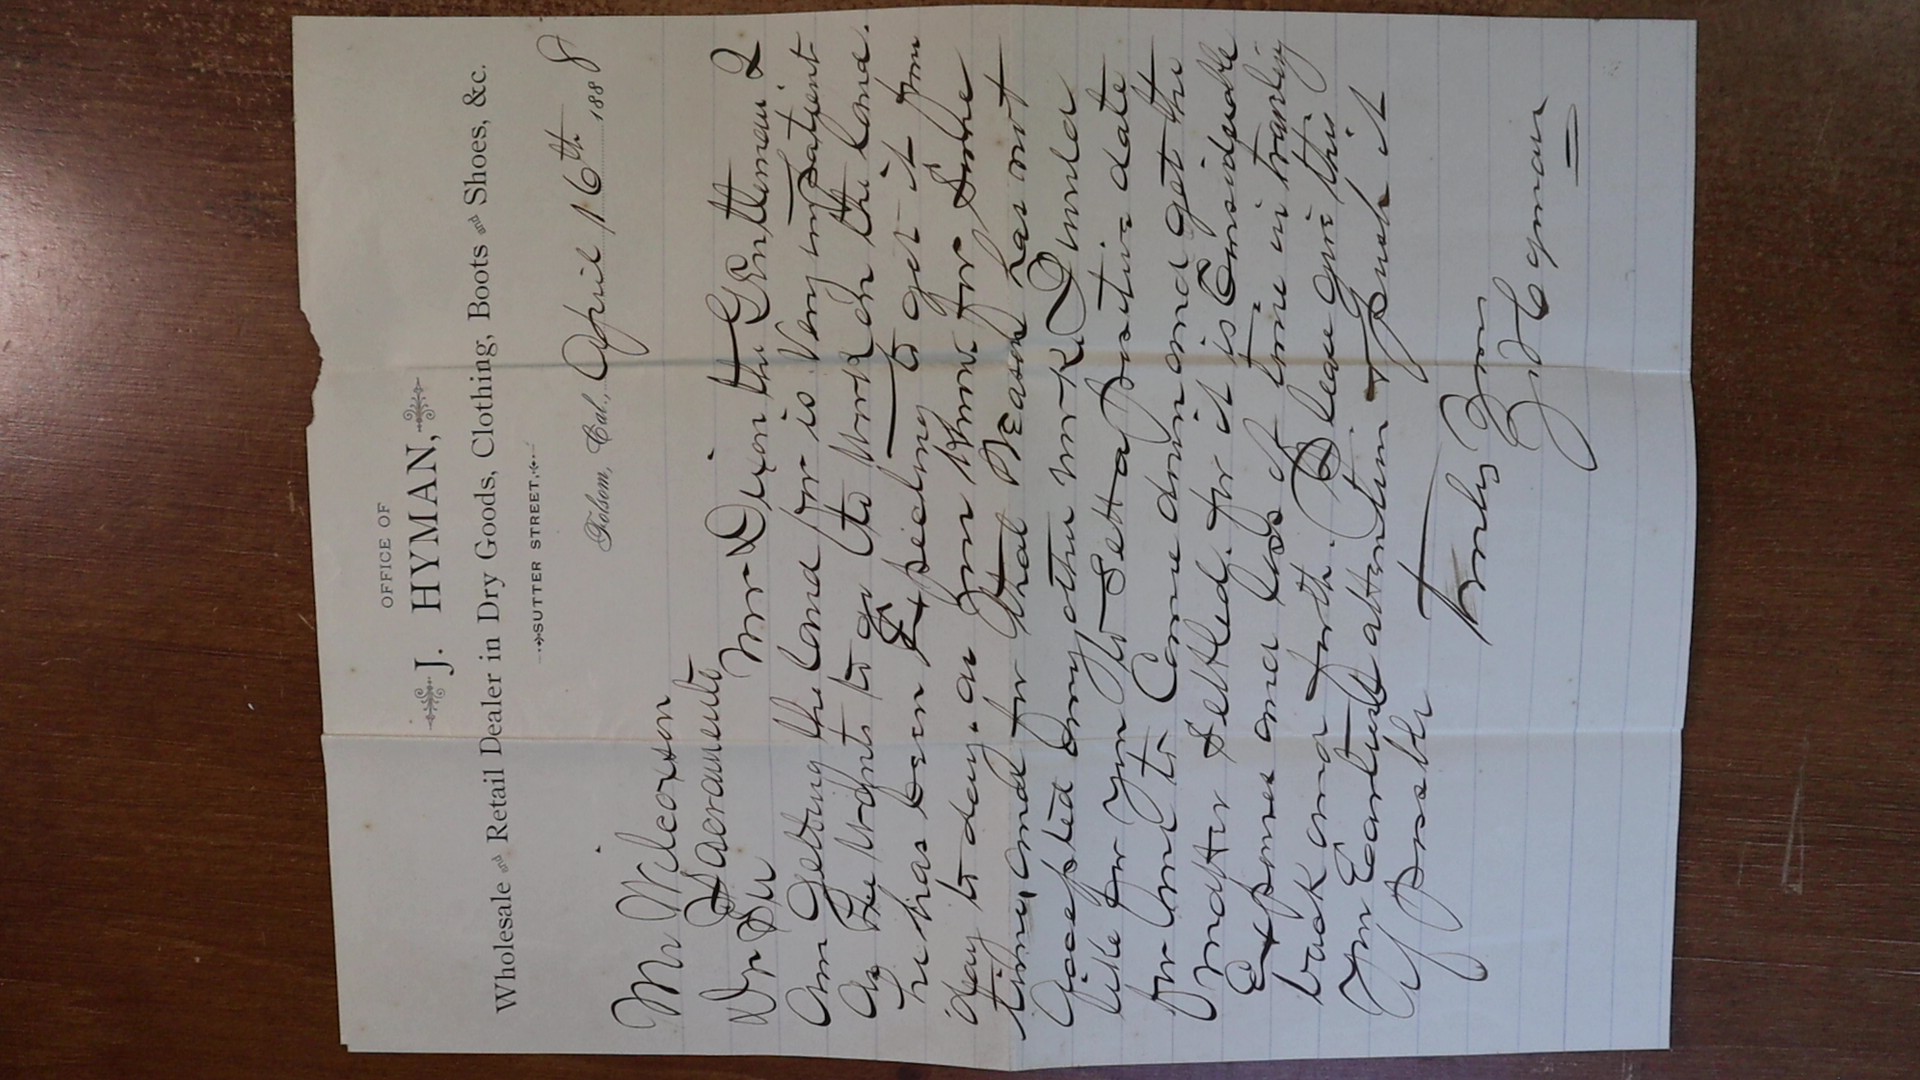 OFFICE OF
J. HYMAN,
Wholesale and Retail Dealer in Dry Goods, Clothing, Boots and Shoes, &c.
SUTTER STREET.
Folsom, Cal., April 16th 1888
Mr Wilcoxson
Sacramento
Dr Sir Mr Dixon the Gentleman I
am getting the land for is very impatient
as he wants to go to work on the land.
he has been Expecting to get it from
day to day. as you know for some
time, and for that Reason has not
accepted any other work. I would
like for you to sett a positive date
for him to Come down and get the
matter settled. for it is Considerable
Expense and loss of time in traveling
back and forth. Please give this
your Earliest attention & push it
if possible
Truly Yours
J Hyman